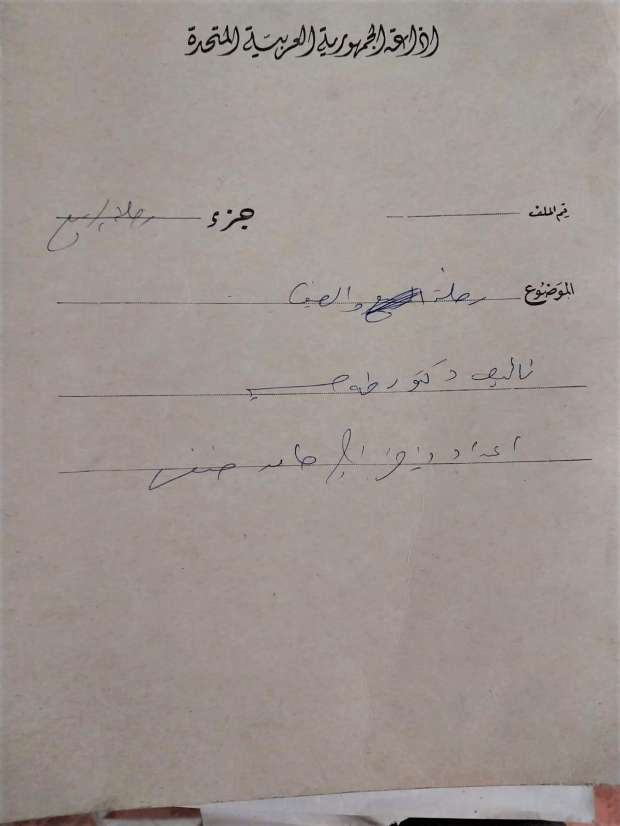 اذاعة الجمهورية العربية المتحدة
رقم الملف
جزء رحلة الربيع
الموضوع رحلة الربيع والصيف
تأليف دكتور طه حسين
اعداد واخراج حامد حنفى